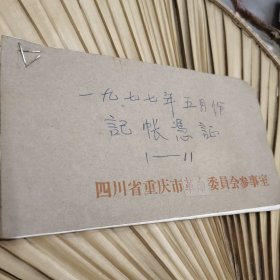 一九七七年五月份
記帳憑証
1—11
四川省重庆市革命委員会参事室